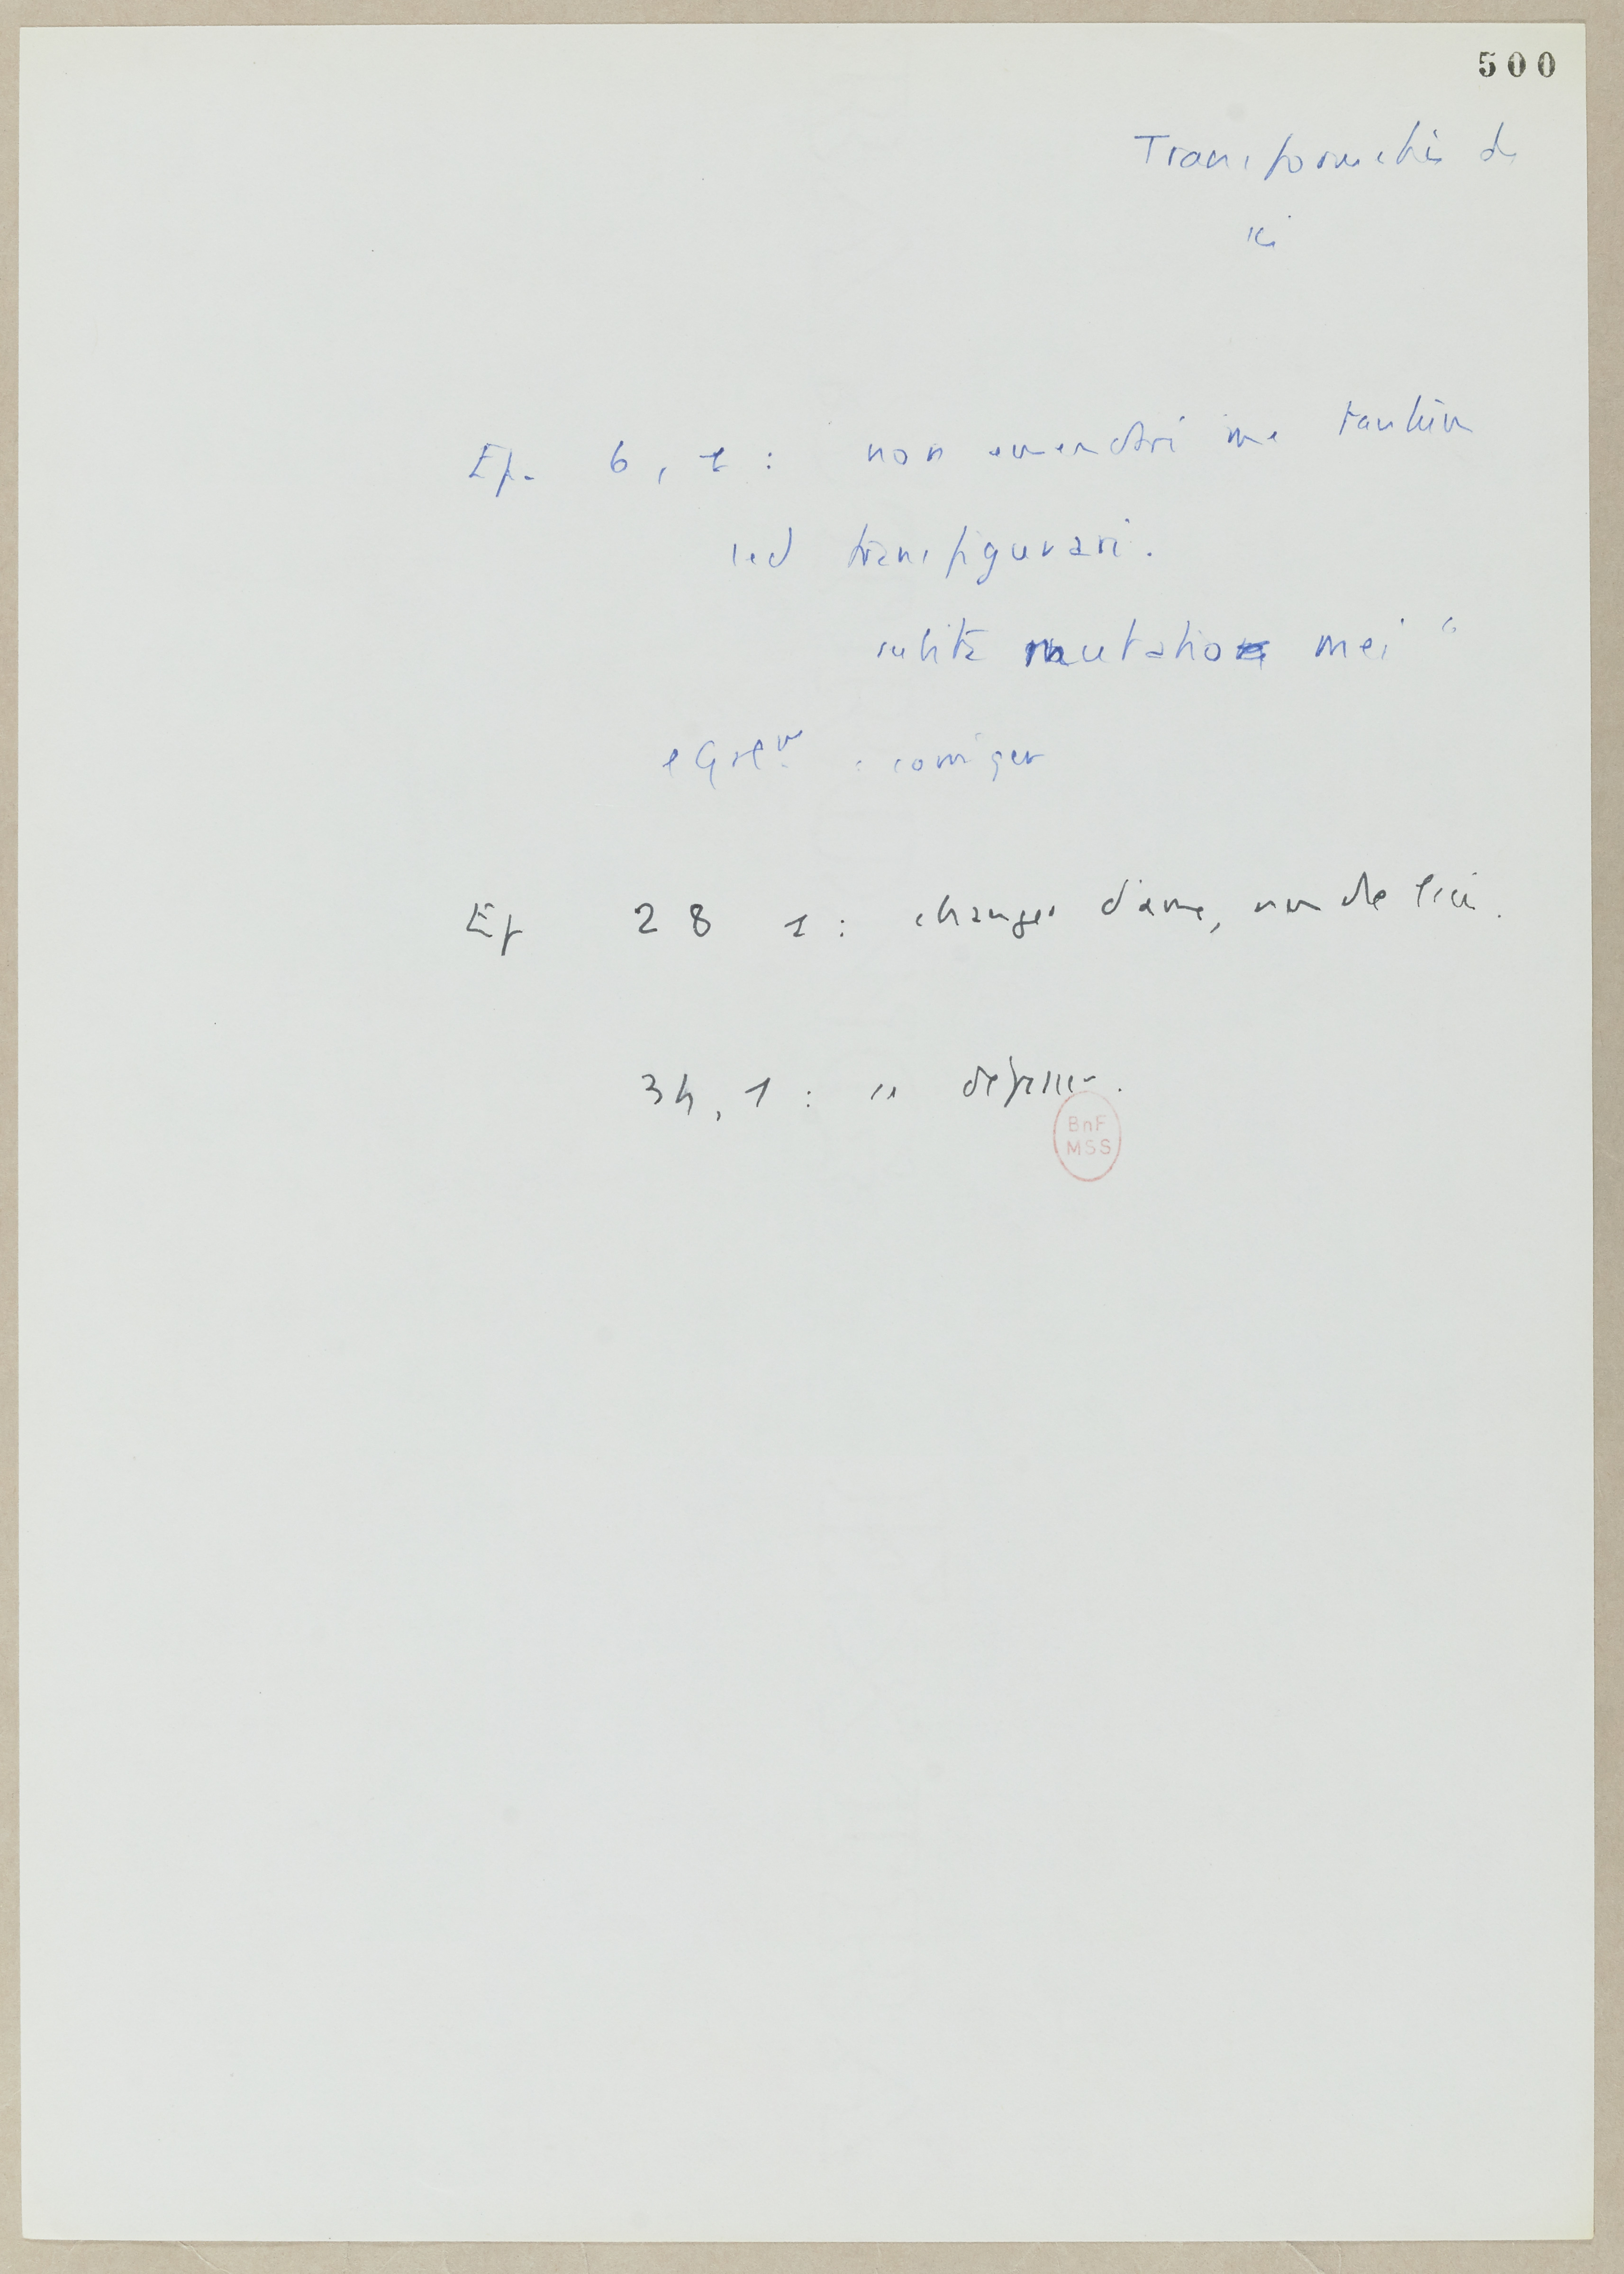 500
Transformation de
soi
Ep. 6, 1 : non emendari me tantum
sed transfigurari.
subita mutatio mei "
: corriger
Ep 28 1 : changer d'ame, non de ciel.
34, 1 : se dépasser.
BnF
MSS